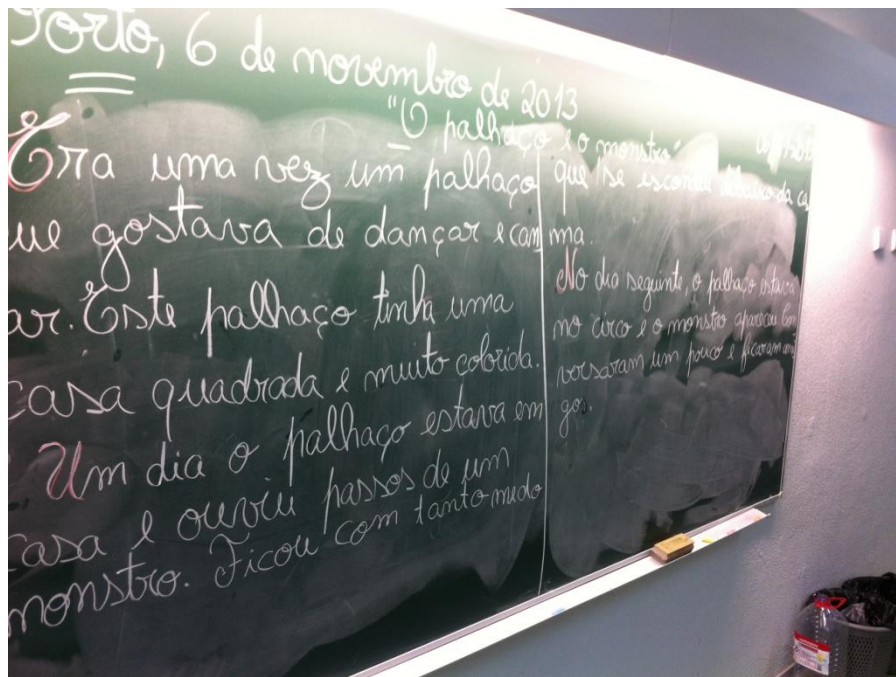 Porto, 6 de novembro de 2013
"O palhaço e o monstro"
Era uma vez um palhaço
ue gostava de dançar e can
ar. Este palhaço tinha uma
casa quadrada e muito colorida.
Um dia o palhaço estava em
casa e ouviu passos de um
monstro. Ficou com tanto medo
que se escondeu debaixo da ca
ma.
No dia seguinte, o palhaço estava
no circo e o monstro apareceu. Con
versaram um pouco e ficaram ami
gos.